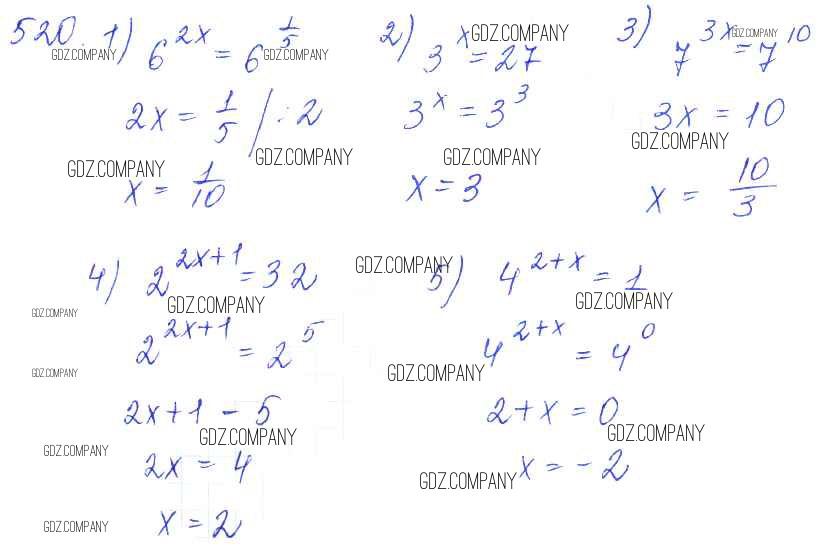 520. 1) 6^{2x} = 6^{1/5}
GDZ.COMPANY GDZ.COMPANY
2x = 1/5 | : 2
GDZ.COMPANY
GDZ.COMPANY
x = 1/10
2) 3^x = 27
GDZ.COMPANY
3^x = 3^3
GDZ.COMPANY
x = 3
3) 7^{3x} = 7^{10}
GDZ.COMPANY
3x = 10
GDZ.COMPANY
x = 10/3
4) 2^{2x+1} = 32
GDZ.COMPANY
GDZ.COMPANY
2^{2x+1} = 2^5
GDZ.COMPANY
2x+1 - 5
GDZ.COMPANY
GDZ.COMPANY
2x = 4
x = 2
GDZ.COMPANY
GDZ.COMPANY
5) 4^{2+x} = 1
GDZ.COMPANY
4^{2+x} = 4^0
GDZ.COMPANY
2+x = 0
GDZ.COMPANY
x = -2
GDZ.COMPANY